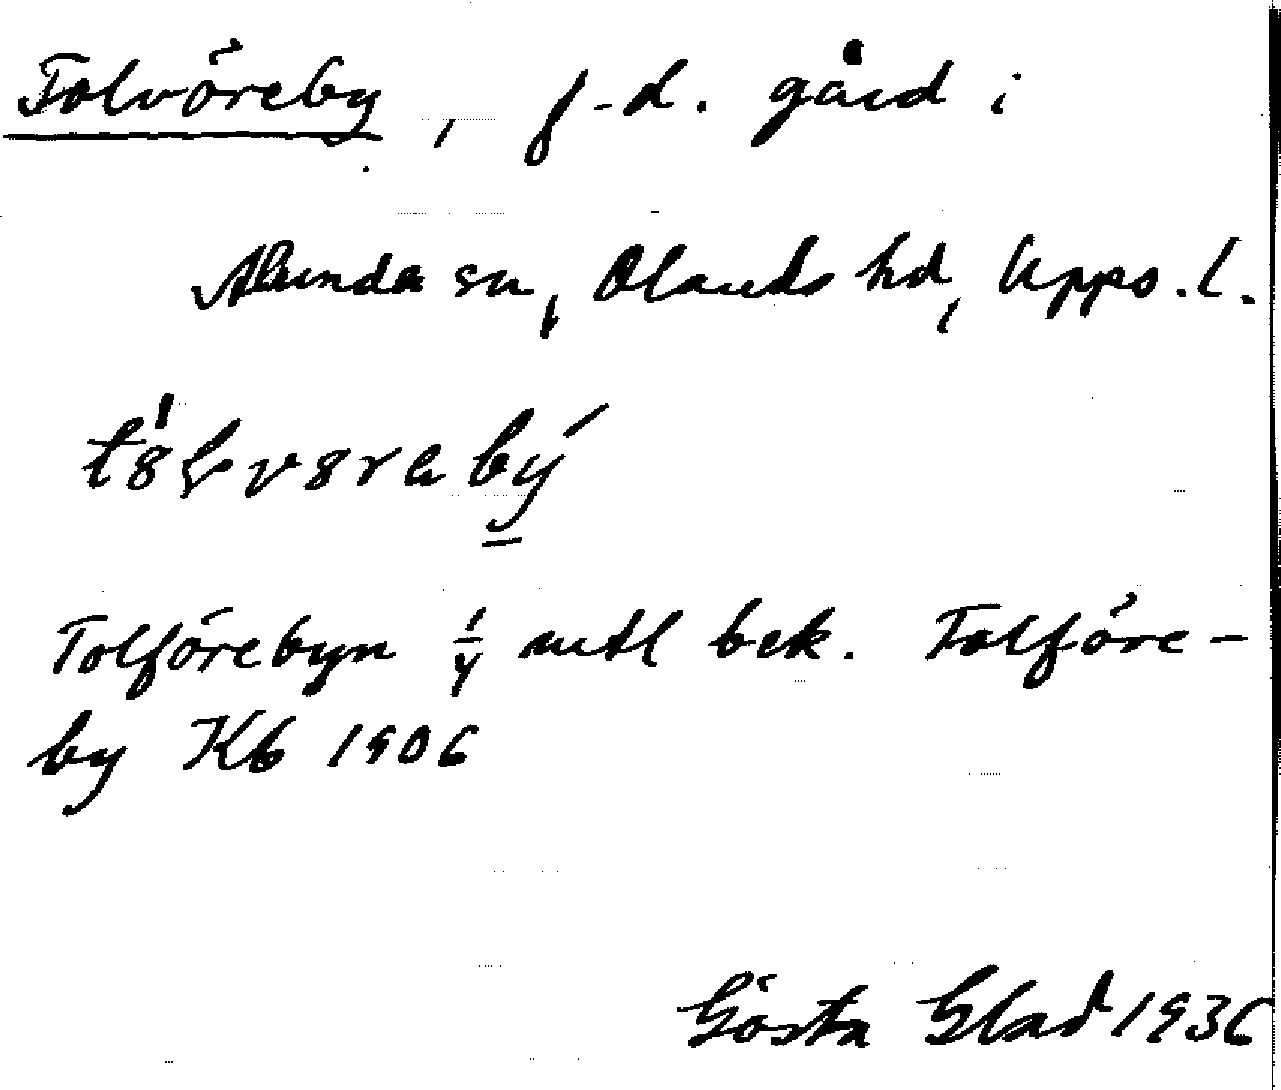 Tolvöreby, f.d. gård i
Alunda sn, Olands hd, Upps. l.
Tolförebyn 1/4 mtl bek. Tolföre-
by Kb 1906
Gösta Glad 1936